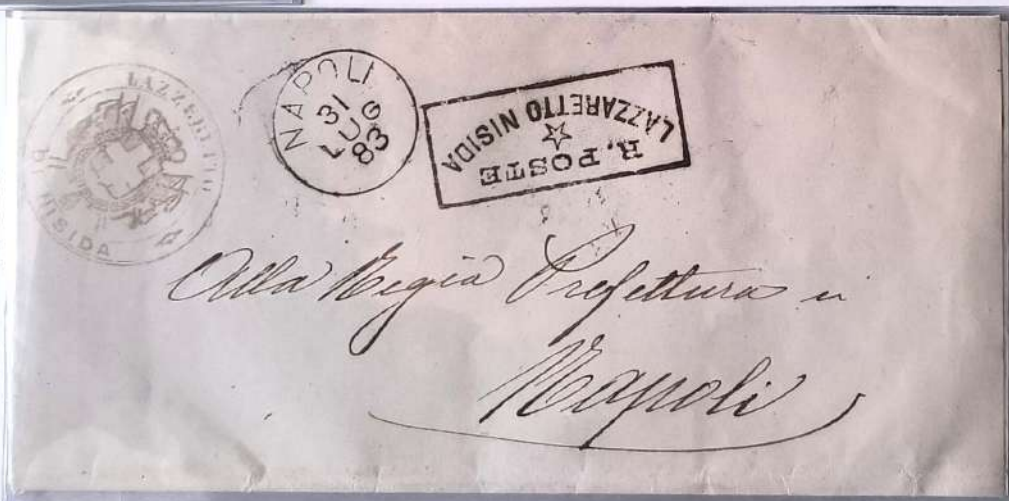 LAZZERETTO
NISIDA
NAPOLI
31
LUG
83
R. POSTE
LAZZARETTO NISIDA
Alla Regia Prefettura in
Napoli